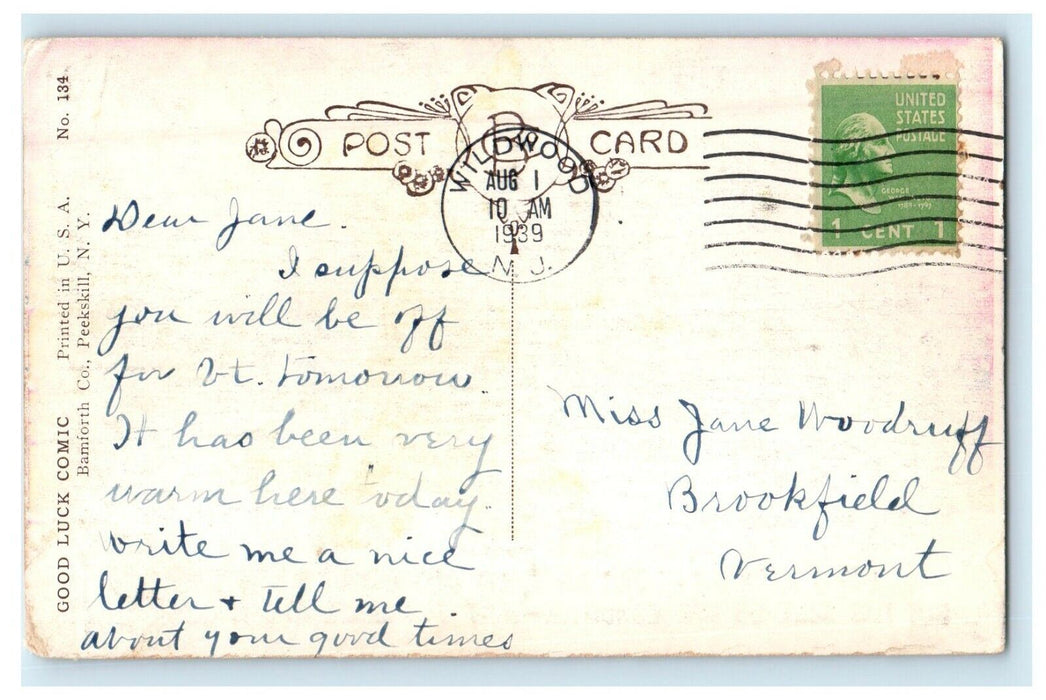 POST CARD
WILDWOOD
AUG 1
10 AM
1939
N. J.
UNITED
STATES
POSTAGE
GEORGE
1 CENT 1
GOOD LUCK COMIC Printed in U. S. A. No. 134
Bamforth Co., Peekskill, N. Y.
Dear Jane.
I suppose
you will be off
for Vt. tomorrow.
It has been very
warm here today.
write me a nice
letter + tell me
about your good times
Miss Jane Woodruff
Brookfield
Vermont